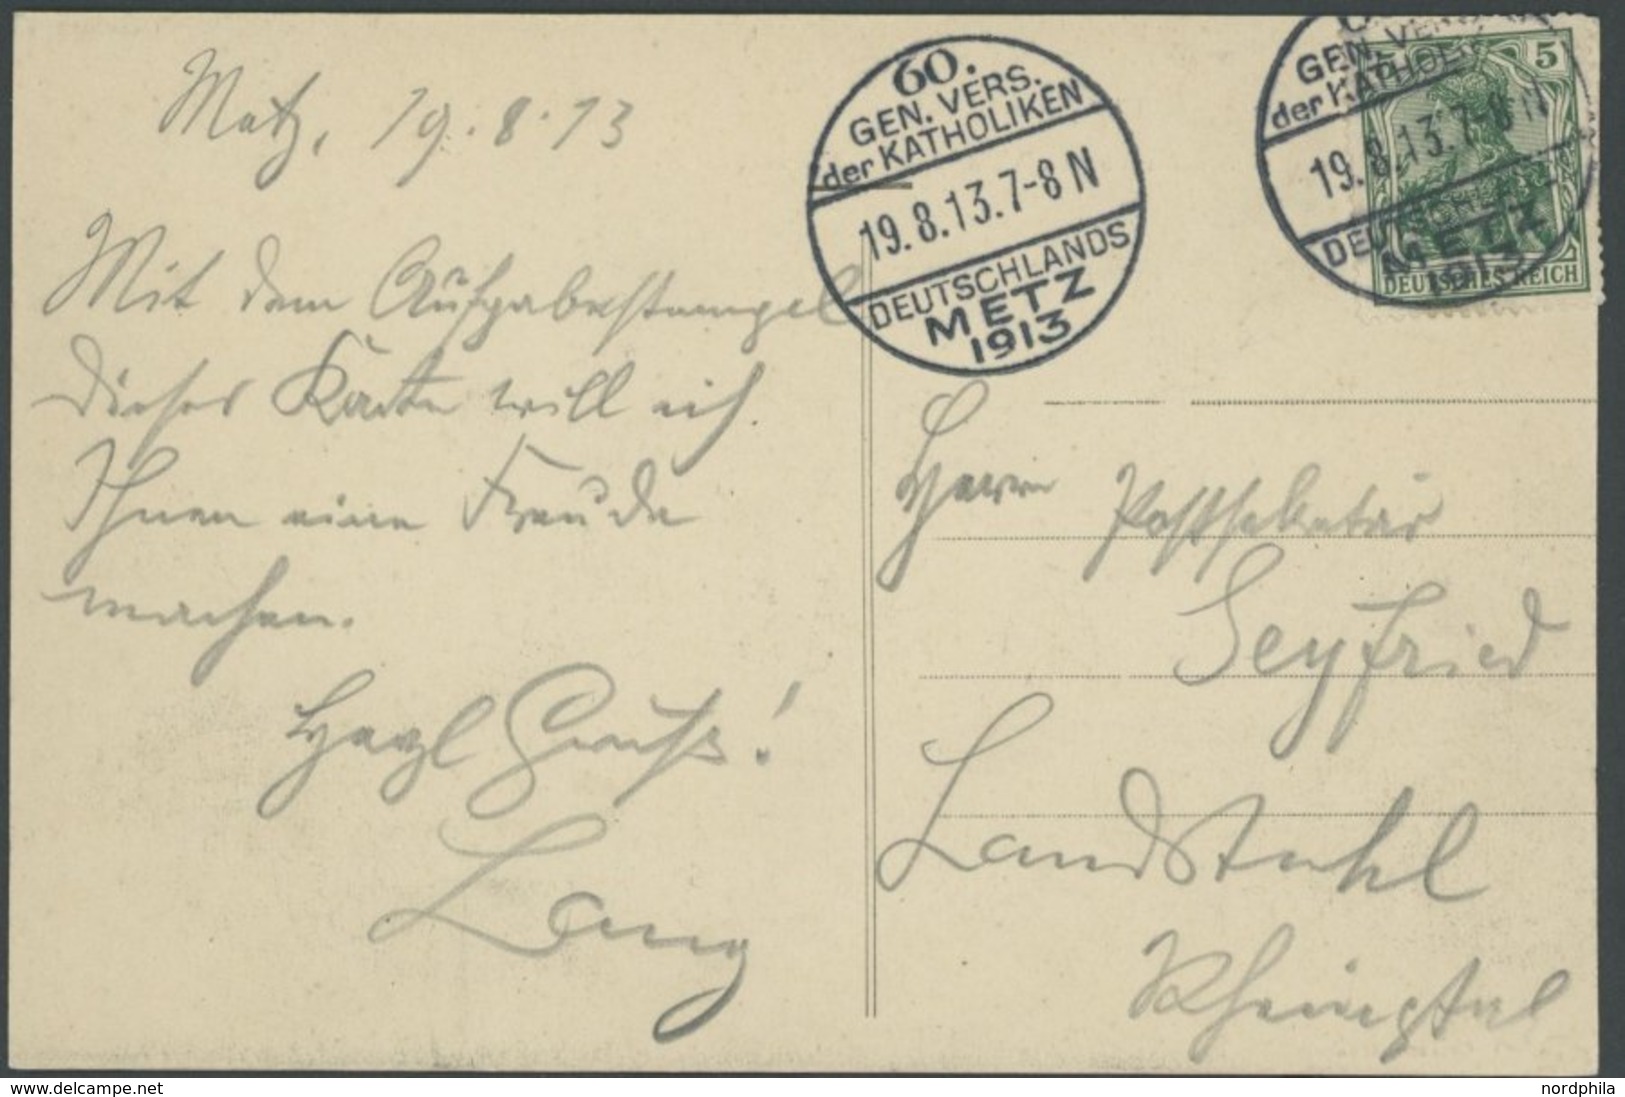 Metz, 19.8.13
Mit dem Aufgabestempel
dieser Karte will ich
Ihnen eine Freude
machen.
Herzl Gruß!
Lang
60.
GEN. VERS.
der KATHOLIKEN
19.8.13.7-8 N
DEUTSCHLANDS
METZ
1913
GEN. VERS.
der KATHOLIKEN
19.8.13.7-8 N
DEUTSCHLANDS
METZ
1913
5
DEUTSCHES REICH
Herrn Postsekretär
Seyfried
Landstuhl
Rheinpfal
delcampe.net
nordphila